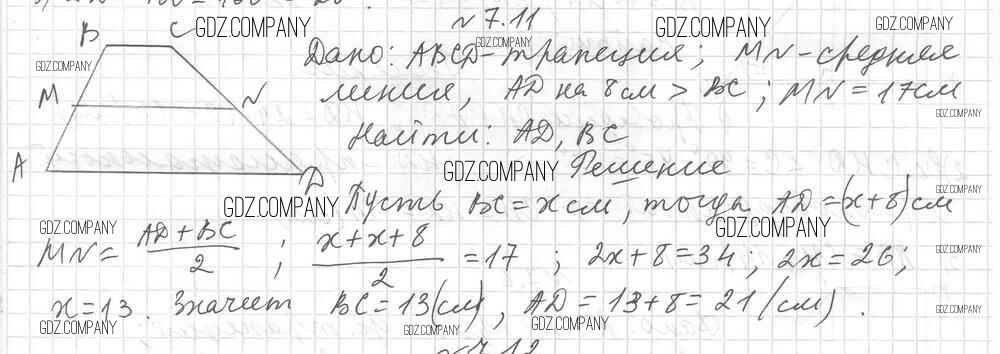 № 7.11
B C GDZ.COMPANY GDZ.COMPANY GDZ.COMPANY
GDZ.COMPANY
Дано: ABCD - трапеция; MN - средняя
GDZ.COMPANY
M N линия, AD на 8 см > BC; MN = 17 см
GDZ.COMPANY
Найти: AD, BC
A D GDZ.COMPANY Решение
GDZ.COMPANY Пусть BC = x см, тогда AD = (x+8) см
GDZ.COMPANY
GDZ.COMPANY GDZ.COMPANY
MN = (AD + BC)/2 ; (x + x + 8)/2 = 17 ; 2x + 8 = 34; 2x = 26;
GDZ.COMPANY
x = 13. Значит BC = 13 (см), AD = 13 + 8 = 21 (см).
GDZ.COMPANY GDZ.COMPANY GDZ.COMPANY GDZ.COMPANY